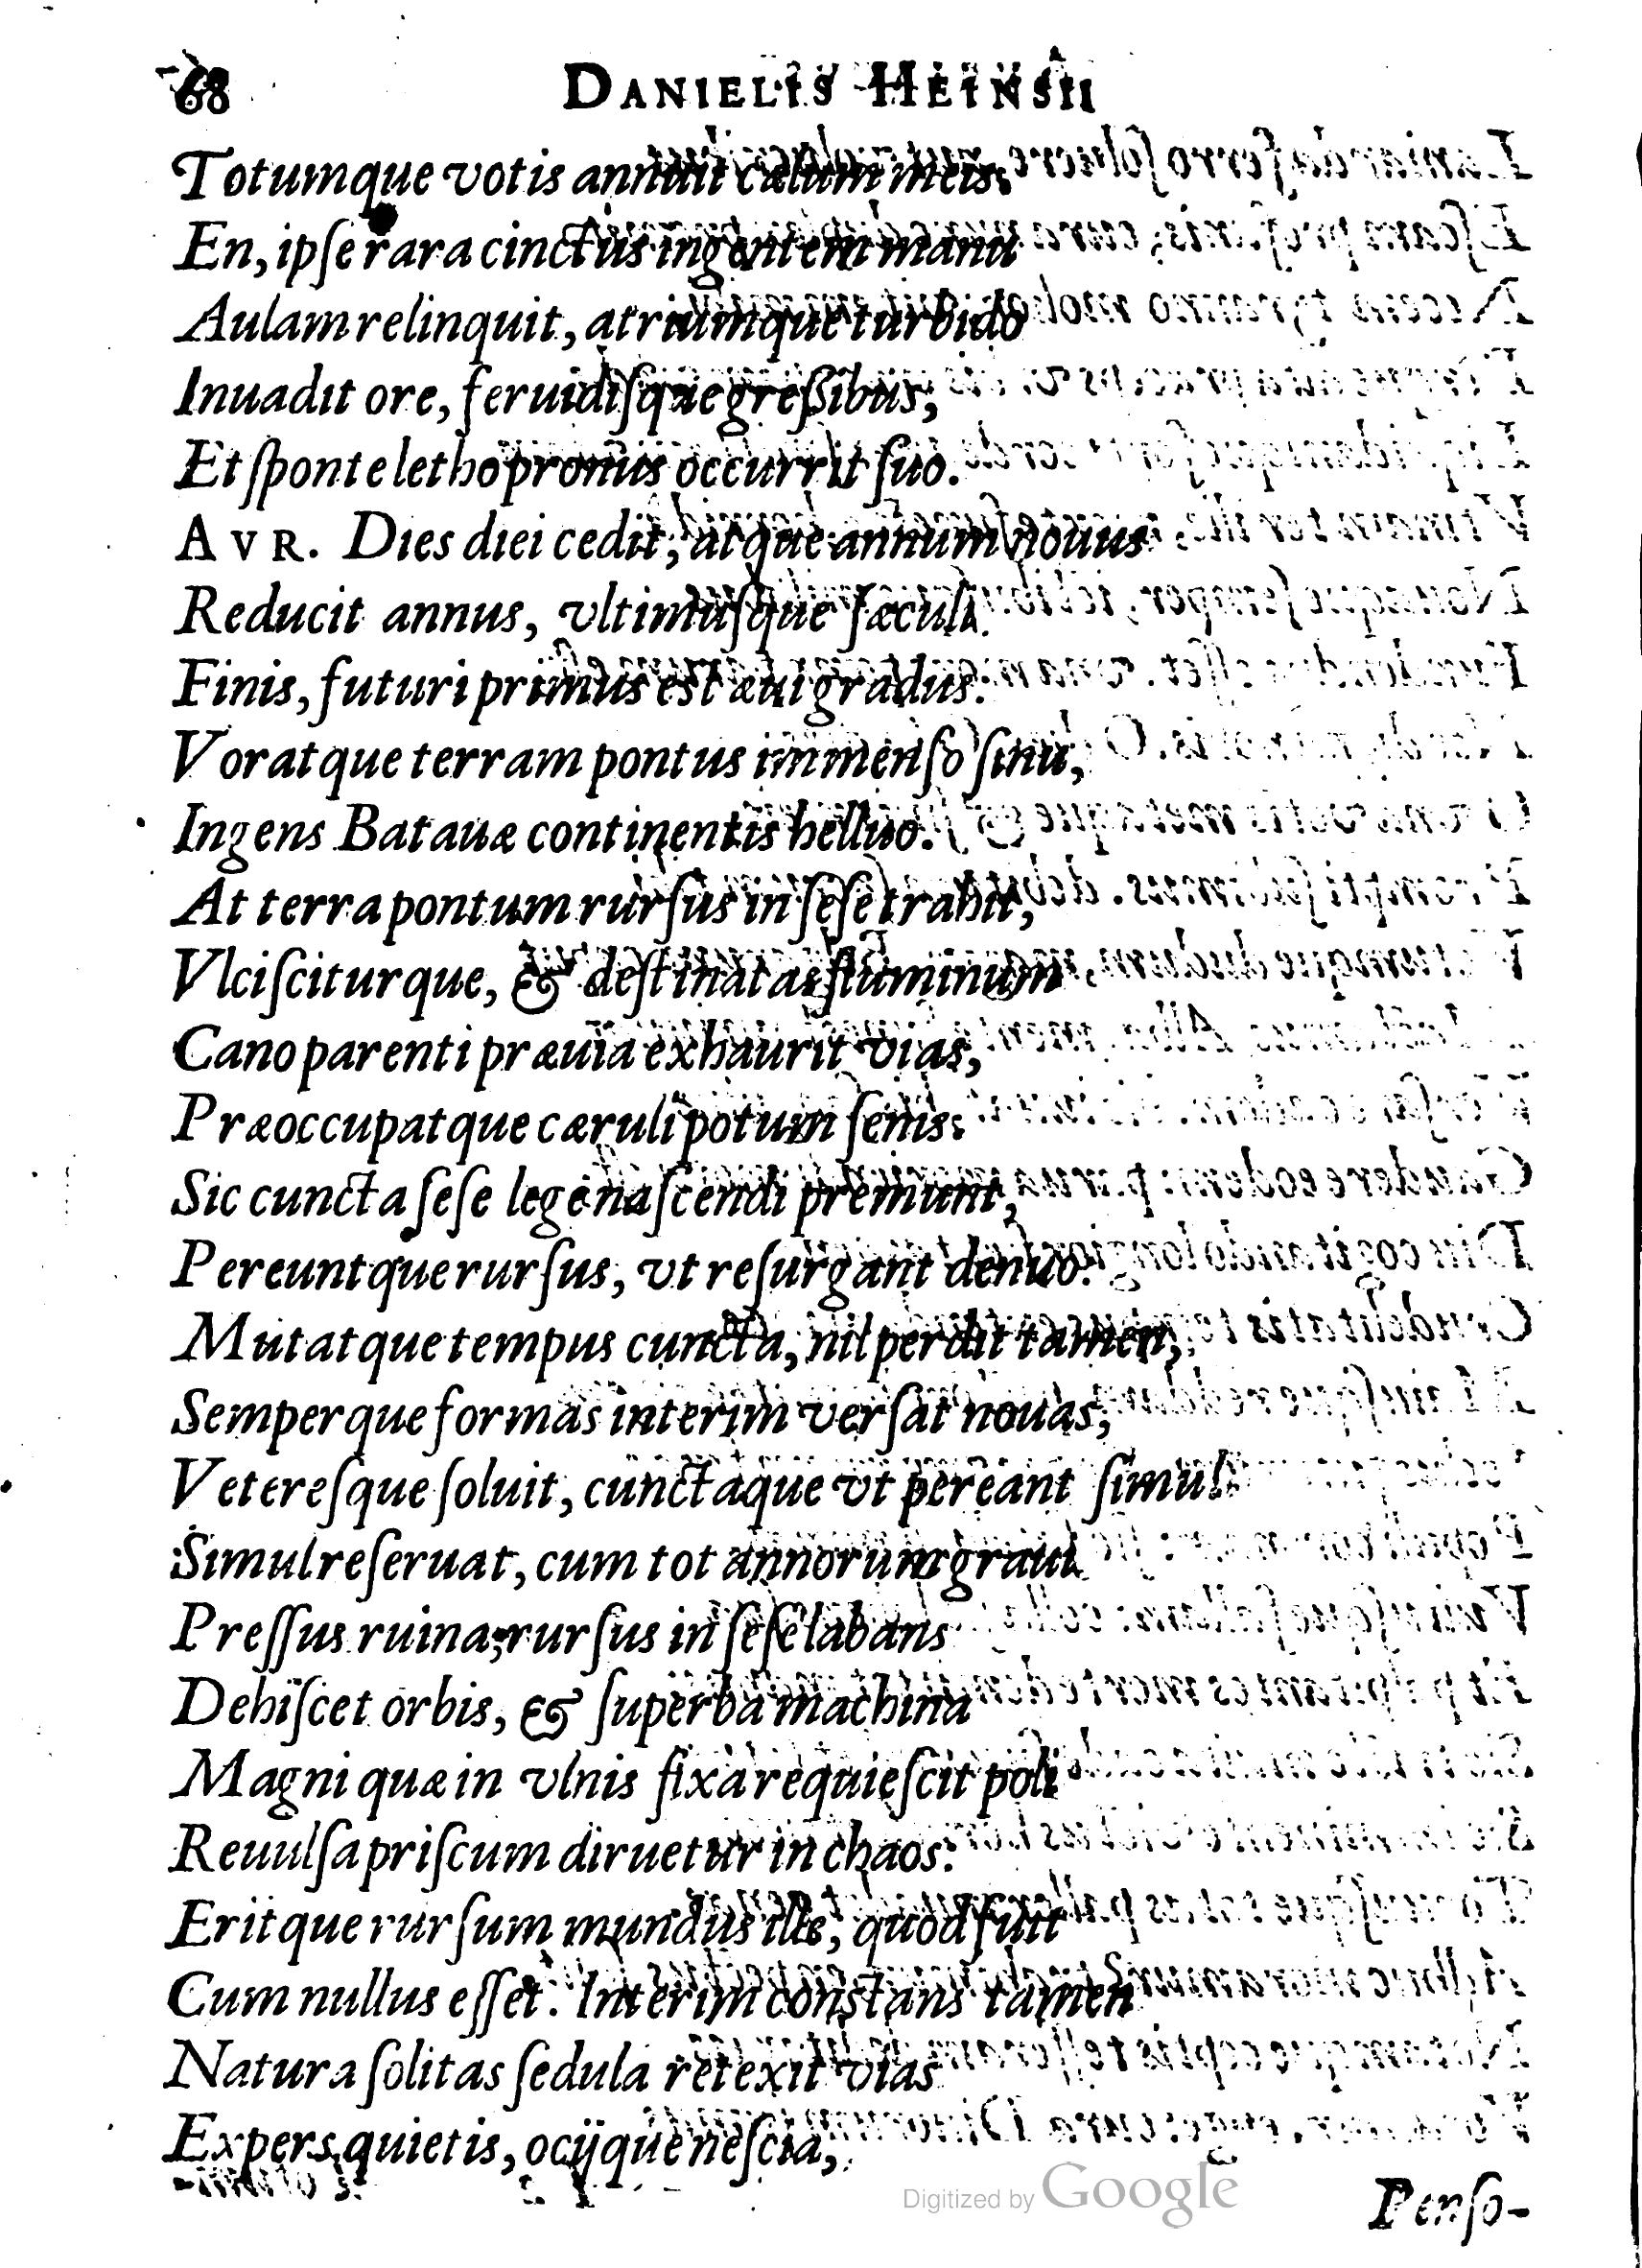 68 DANIELIS HEINSII
Totumque votis annuit cælum meis.
En, ipſe rara cinctus ingentem manu
Aulam relinquit, atriumque turbido
Inuadit ore, feruidiſque greſsibus,
Et ſponte letho pronus occurrit ſuo.
AVR. Dies diei cedit, atque annum nouus
Reducit annus, vltimuſque ſæculi
Finis, futuri primus est æui gradus.
Voratque terram pontus immenſo ſinu,
Ingens Batauæ continentis helluo.
At terra pontum rurſus in ſeſe trahit,
Vlciſciturque, & deſtinatas fluminum
Cano parenti præuia exhaurit vias,
Præoccupatque cæruli potum ſenis.
Sic cuncta ſeſe lege naſcendi premunt,
Pereuntque rurſus, vt reſurgant denuo.
Mutatque tempus cuncta, nil perdit tamen,
Semperque formas interim verſat nouas,
Vetereſque ſoluit, cunctaque vt pereant ſimul
Simul reſeruat, cum tot annorum graui
Preſſus ruina, rurſus in ſeſe labans
Dehiſcet orbis, & ſuperba machina
Magni quæ in vlnis fixa requieſcit poli
Reuulſa priſcum diruetur in chaos.
Eritque rurſum mundus ille, quod fuit
Cum nullus eſſet. Interim constans tamen
Natura ſolitas ſedula retexit vias
Expers quietis, ocijque neſcia,
Penſo-
Digitized by Google